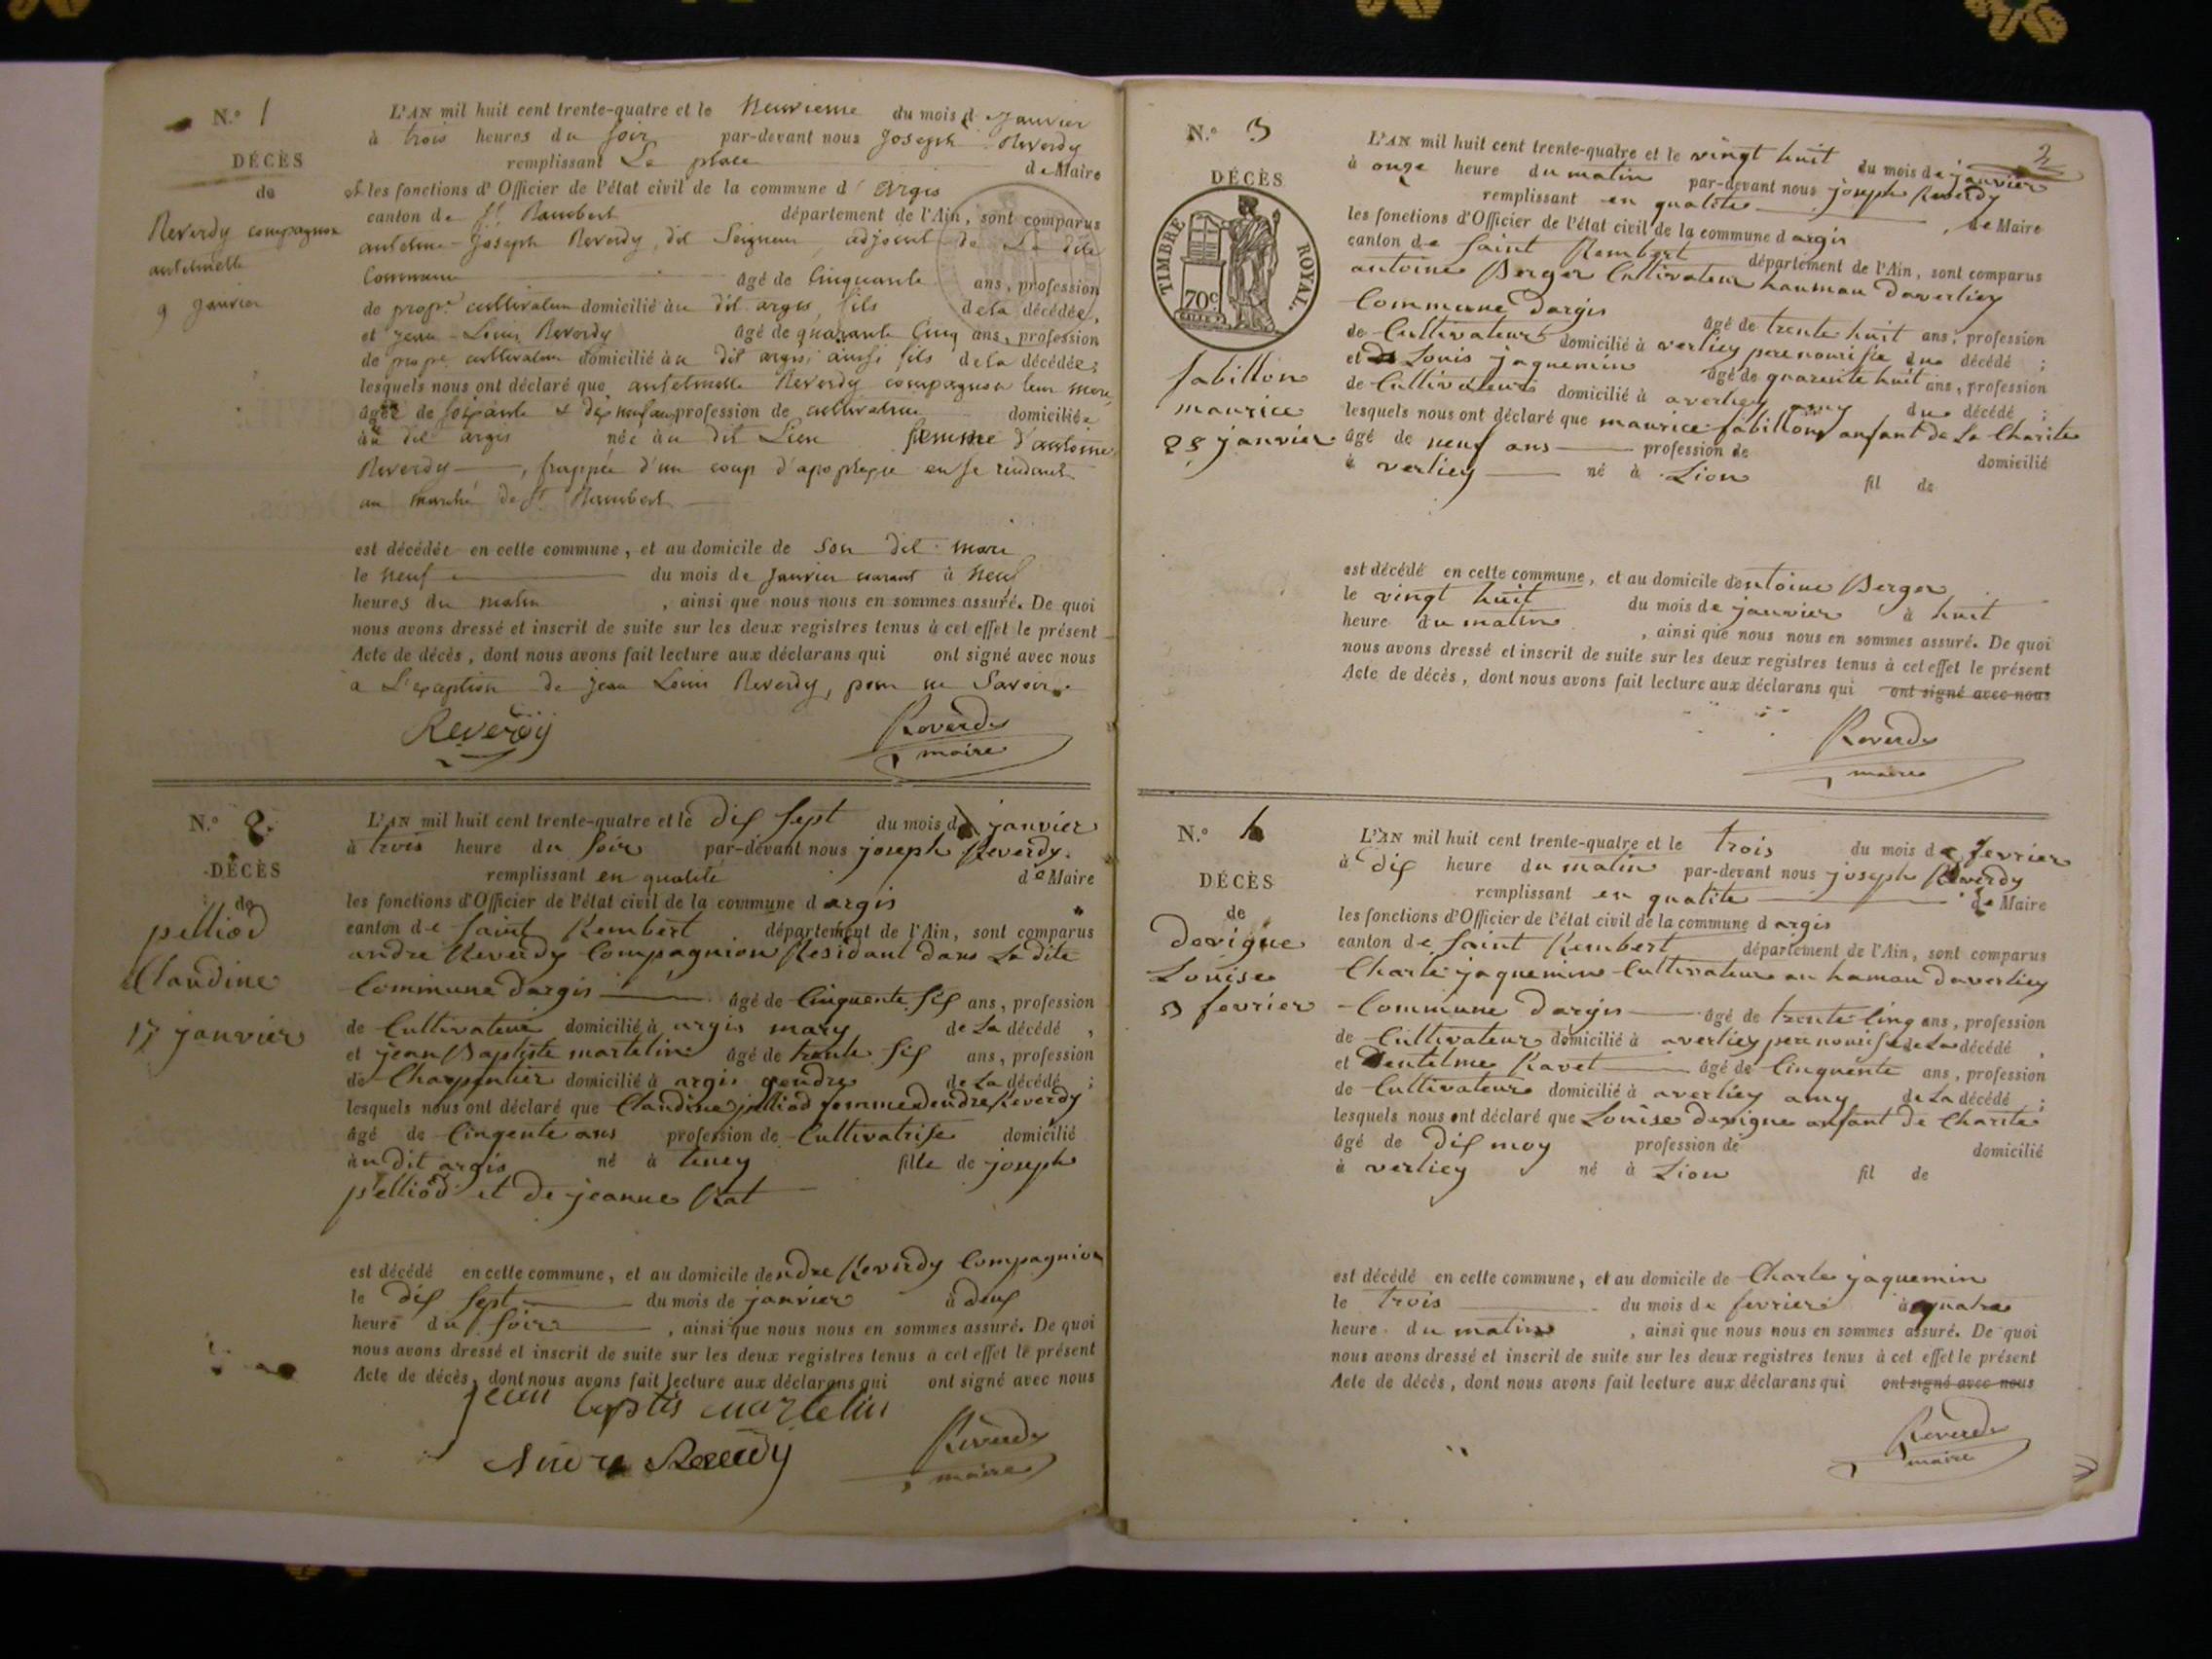 N.º 1
DÉCÈS
de
Reverdy compagnon
antelmette
9 janvier
L'AN mil huit cent trente-quatre et le neuvieme du mois d janvier
à trois heures du soir par-devant nous Joseph Reverdy
remplissant La place de Maire
et les fonctions d'Officier de l'état civil de la commune d'argis
canton de St. Rambert département de l'Ain, sont comparus
antelme-Joseph Reverdy, dit Seigneur, adjoint de La dite
Commune âgé de Cinquante ans, profession
de propre cultivateur domicilié àu dit argis, fils de la décédée,
et Jean-Louis Reverdy âgé de quarante Cinq ans, profession
de propre cultivateur domicilié àu dit argis, aussi fils de la décédée;
lesquels nous ont déclaré que antelmette Reverdy compagnon leur mere,
âgée de soixante & dix neuf ans profession de cultivatrice domiciliée
àu dit argis née àu dit Lieu femme d'antoine
Reverdy, frappée d'un coup d'apoplexie en se rendant
au marché de St. Rambert
est décédée en cette commune, et au domicile de son dit mari
le neuf du mois de Janvier courant à neuf
heures du matin, ainsi que nous nous en sommes assuré. De quoi
nous avons dressé et inscrit de suite sur les deux registres tenus à cet effet le présent
Acte de décès, dont nous avons fait lecture aux déclarans qui ont signé avec nous
a L'exception de Jean Louis Reverdy, pour ne Savoir.
Reverdy
Reverdy
maire
N.º 2
DÉCÈS
de
pelliod
Claudine
17 janvier
L'AN mil huit cent trente-quatre et le dix sept du mois d janvier
à trois heure du soir par-devant nous joseph Reverdy.
remplissant en qualité de Maire
les fonctions d'Officier de l'état civil de la commune d argis
canton de saint Rembert département de l'Ain, sont comparus
andre Reverdy Compagnion Residant dans La dite
Commune dargis âgé de Cinquente six ans, profession
de Cultivateur domicilié à argis mary de La décédé,
et jean Baptiste martelin âgé de trente six ans, profession
de Charpentier domicilié à argis gendre de La décédé;
lesquels nous ont déclaré que Claudine pelliod femme dandre Reverdy
âgé de Cingente ans profession de Cultivatrise domicilié
àu dit argis né à teney fille de joseph
pelliod et de jeanne Rat
est décédé en cette commune, et au domicile dendre Reverdy Compagnion
le dix sept du mois de janvier à deux
heure du soir, ainsi que nous nous en sommes assuré. De quoi
nous avons dressé et inscrit de suite sur les deux registres tenus à cet effet le présent
Acte de décès, dont nous avons fait lecture aux déclarans qui ont signé avec nous
jean baptis martelin
Andre Reverdy
Reverdy
maire
2
N.º 3
DÉCÈS
TIMBRE ROYAL.
70c
fabillon
maurice
28 janvier
L'AN mil huit cent trente-quatre et le vingt huit du mois de janvier
à onze heure du matin par-devant nous joseph Reverdy
remplissant en qualite de Maire
les fonctions d'Officier de l'état civil de la commune d argis
canton de saint Rembert département de l'Ain, sont comparus
antoine Berger Cultivateur hau mau daverliey
Commune dargis âgé de trente huit ans, profession
de Cultivateur domicilié à verliey pere nourisie du décédé;
et Louis jaquemin âgé de quarente huit ans, profession
de Cultivateur domicilié à averliey amy du décédé;
lesquels nous ont déclaré que maurice fabillon anfant de La Charite
âgé de neuf ans profession de domicilié
à verliey né à Lion fil de
est décédé en cette commune, et au domicile dentoine Berger
le vingt huit du mois de janvier à huit
heure du matin, ainsi que nous nous en sommes assuré. De quoi
nous avons dressé et inscrit de suite sur les deux registres tenus à cet effet le présent
Acte de décès, dont nous avons fait lecture aux déclarans qui ont signé avec nous
Reverdy
maire
N.º 4
DÉCÈS
de
devigne
Louise
3 fevrier
L'AN mil huit cent trente-quatre et le trois du mois de fevrier
à dix heure du matin par-devant nous joseph Reverdy
remplissant en qualite de Maire
les fonctions d'Officier de l'état civil de la commune d argis
canton de saint Rembert département de l'Ain, sont comparus
Charle jaquemin Cultivateur au hamau daverliey
Commune dargis âgé de trente cinq ans, profession
de Cultivateur domicilié à averliey pere nourise de La décédé,
et dentelme Ravet âgé de Cinquente ans, profession
de Cultivateur domicilié à averliey amy de La décédé;
lesquels nous ont déclaré que Louise devigne anfant de Charite
âgé de dix moy profession de domicilié
à verliey né à Lion fil de
est décédé en cette commune, et au domicile de Charle jaquemin
le trois du mois de fevrier à quatre
heure du matin, ainsi que nous nous en sommes assuré. De quoi
nous avons dressé et inscrit de suite sur les deux registres tenus à cet effet le présent
Acte de décès, dont nous avons fait lecture aux déclarans qui ont signé avec nous
Reverdy
maire